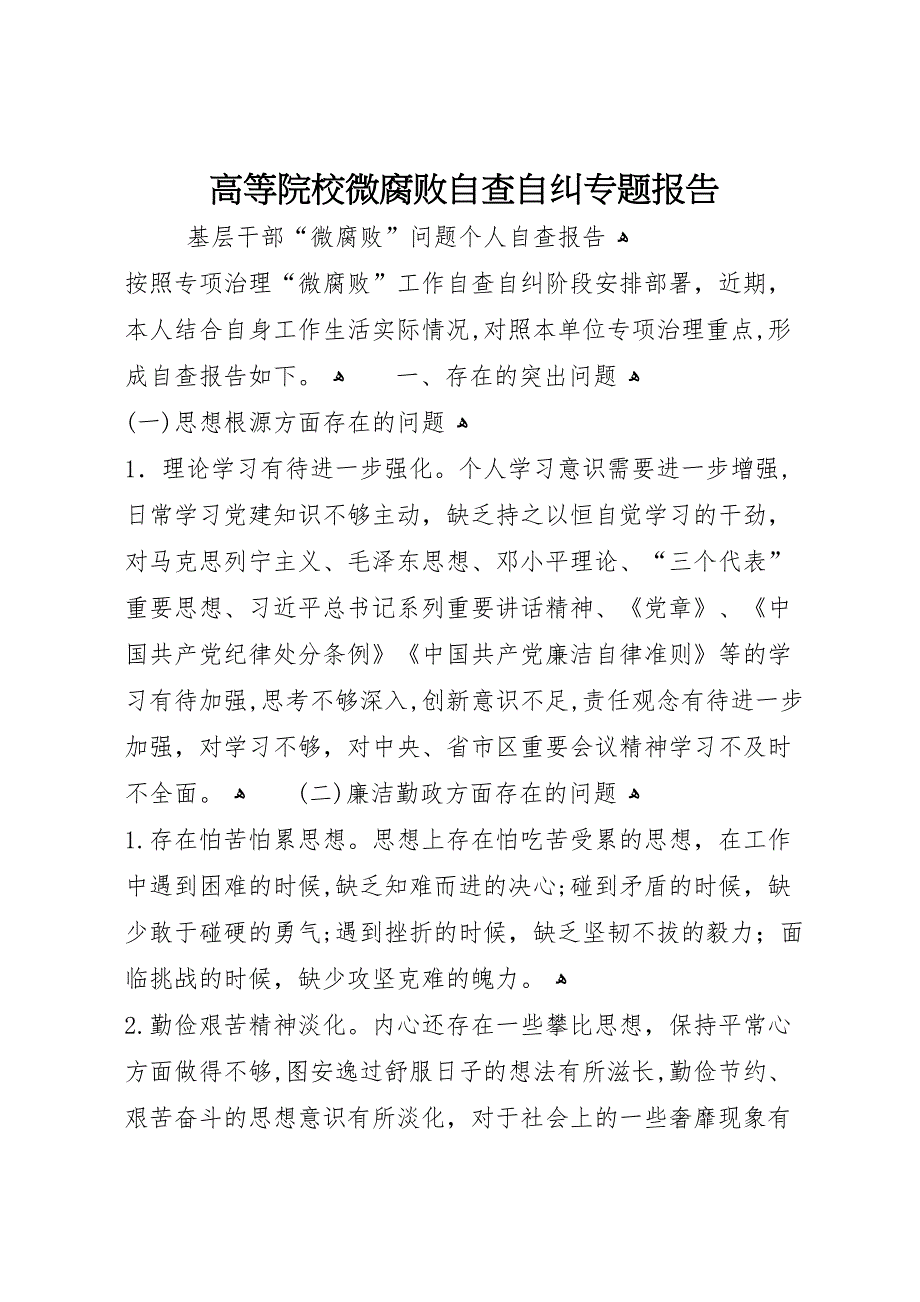 高等院校微腐败自查自纠专题报告
基层干部“微腐败”问题个人自查报告 ﻫ
按照专项治理“微腐败”工作自查自纠阶段安排部署，近期，
本人结合自身工作生活实际情况,对照本单位专项治理重点,形
成自查报告如下。 ﻫ 一、存在的突出问题 ﻫ
(一)思想根源方面存在的问题 ﻫ
1．理论学习有待进一步强化。个人学习意识需要进一步增强,
日常学习党建知识不够主动，缺乏持之以恒自觉学习的干劲，
对马克思列宁主义、毛泽东思想、邓小平理论、“三个代表”
重要思想、习近平总书记系列重要讲话精神、《党章》、《中
国共产党纪律处分条例》《中国共产党廉洁自律准则》等的学
习有待加强,思考不够深入,创新意识不足,责任观念有待进一步
加强，对学习不够，对中央、省市区重要会议精神学习不及时
不全面。 ﻫ (二)廉洁勤政方面存在的问题 ﻫ
1.存在怕苦怕累思想。思想上存在怕吃苦受累的思想，在工作
中遇到困难的时候,缺乏知难而进的决心;碰到矛盾的时候，缺
少敢于碰硬的勇气;遇到挫折的时候，缺乏坚韧不拔的毅力；面
临挑战的时候，缺少攻坚克难的魄力。 ﻫ
2.勤俭艰苦精神淡化。内心还存在一些攀比思想，保持平常心
方面做得不够,图安逸过舒服日子的想法有所滋长,勤俭节约、
艰苦奋斗的思想意识有所淡化，对于社会上的一些奢靡现象有